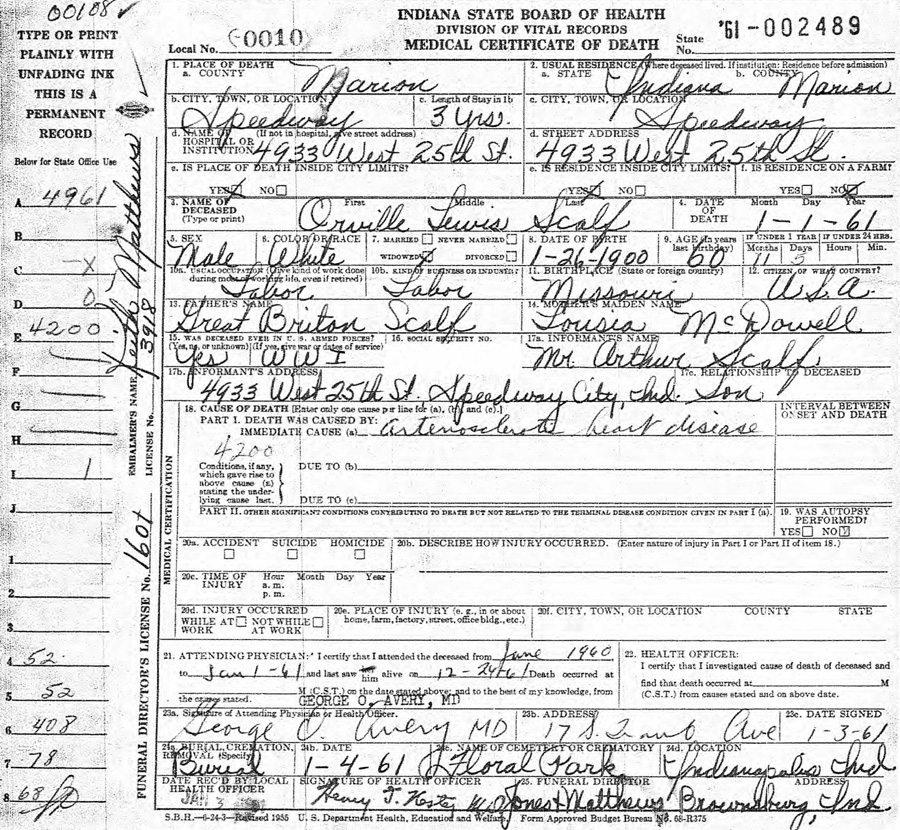 00108
INDIANA STATE BOARD OF HEALTH
DIVISION OF VITAL RECORDS
MEDICAL CERTIFICATE OF DEATH
Local No. 0010
State No. '61-002489
TYPE OR PRINT
PLAINLY WITH
UNFADING INK
THIS IS A
PERMANENT
RECORD
Below for State Office Use
A 4961
B
C X
D 0
E 4200
F
G
H
I 1
J
1
2
3
4 52
5 52
6 408
7 78
8 68
EMBALMER'S NAME Keith Matthews
LICENSE No. 3918
FUNERAL DIRECTOR'S LICENSE No. 1601
1. PLACE OF DEATH
a. COUNTY Marion
2. USUAL RESIDENCE (Where deceased lived. If institution: Residence before admission)
a. STATE Indiana b. COUNTY Marion
b. CITY, TOWN, OR LOCATION Speedway
c. Length of Stay in 1b 3 Yrs.
c. CITY, TOWN, OR LOCATION Speedway
d. NAME OF HOSPITAL OR INSTITUTION (If not in hospital, give street address) 4933 West 25th St.
d. STREET ADDRESS 4933 West 25th St.
e. IS PLACE OF DEATH INSIDE CITY LIMITS?
YES NO
e. IS RESIDENCE INSIDE CITY LIMITS?
YES NO
f. IS RESIDENCE ON A FARM?
YES NO
3. NAME OF DECEASED (Type or print) First Middle Last
Orville Lewis Scalf
4. DATE OF DEATH Month Day Year
1-1-61
5. SEX Male
6. COLOR OR RACE White
7. MARRIED NEVER MARRIED
WIDOWED DIVORCED
8. DATE OF BIRTH 1-26-1900
9. AGE (In years last birthday) 60
IF UNDER 1 YEAR Months 11 Days 5
IF UNDER 24 HRS. Hours Min.
10a. USUAL OCCUPATION (Give kind of work done during most of working life, even if retired) Labor
10b. KIND OF BUSINESS OR INDUSTRY Labor
11. BIRTHPLACE (State or foreign country) Missouri
12. CITIZEN OF WHAT COUNTRY? U.S.A.
13. FATHER'S NAME Great Briton Scalf
14. MOTHER'S MAIDEN NAME Lousia McDowell
15. WAS DECEASED EVER IN U. S. ARMED FORCES? (Yes, no, or unknown) (If yes, give war or dates of service) Yes WWI
16. SOCIAL SECURITY NO.
17a. INFORMANT'S NAME Mr. Arthur Scalf
17b. INFORMANT'S ADDRESS 4933 West 25th St. Speedway City, Ind.
17c. RELATIONSHIP TO DECEASED Son
MEDICAL CERTIFICATION
18. CAUSE OF DEATH [Enter only one cause per line for (a), (b), and (c).]
INTERVAL BETWEEN ONSET AND DEATH
PART I. DEATH WAS CAUSED BY:
IMMEDIATE CAUSE (a) arteriosclerotic heart disease
4200
Conditions, if any, which gave rise to above cause (a) stating the underlying cause last.
DUE TO (b)
DUE TO (c)
PART II. OTHER SIGNIFICANT CONDITIONS CONTRIBUTING TO DEATH BUT NOT RELATED TO THE TERMINAL DISEASE CONDITION GIVEN IN PART I (a).
19. WAS AUTOPSY PERFORMED?
YES NO
20a. ACCIDENT SUICIDE HOMICIDE
20b. DESCRIBE HOW INJURY OCCURRED. (Enter nature of injury in Part I or Part II of item 18.)
20c. TIME OF INJURY Hour Month Day Year
a. m.
p. m.
20d. INJURY OCCURRED
WHILE AT WORK NOT WHILE AT WORK
20e. PLACE OF INJURY (e. g., in or about home, farm, factory, street, office bldg., etc.)
20f. CITY, TOWN, OR LOCATION COUNTY STATE
21. ATTENDING PHYSICIAN: I certify that I attended the deceased from June 1960
to Jan 1-61 and last saw him alive on Death occurred at
M (C.S.T.) on the date stated above; and to the best of my knowledge, from the causes stated.
GEORGE O. AVERY, MD
22. HEALTH OFFICER:
I certify that I investigated cause of death of deceased and find that death occurred at M
(C.S.T.) from causes stated and on above date.
23a. Signature of Attending Physician or Health Officer.
George O. Avery MD
23b. ADDRESS 17 S. Ave
23c. DATE SIGNED 1-3-61
24a. BURIAL, CREMATION, REMOVAL (Specify) Burial
24b. DATE 1-4-61
24c. NAME OF CEMETERY OR CREMATORY Floral Park
24d. LOCATION Indianapolis Ind
DATE REC'D BY LOCAL HEALTH OFFICER JAN 3
SIGNATURE OF HEALTH OFFICER Henry
25. FUNERAL DIRECTOR Jones & Matthews
ADDRESS Brownsburg, Ind.
S.B.H.—6-24-3—Revised 1955 U. S. Department Health, Education and Welfare Form Approved Budget Bureau No. 68-R375